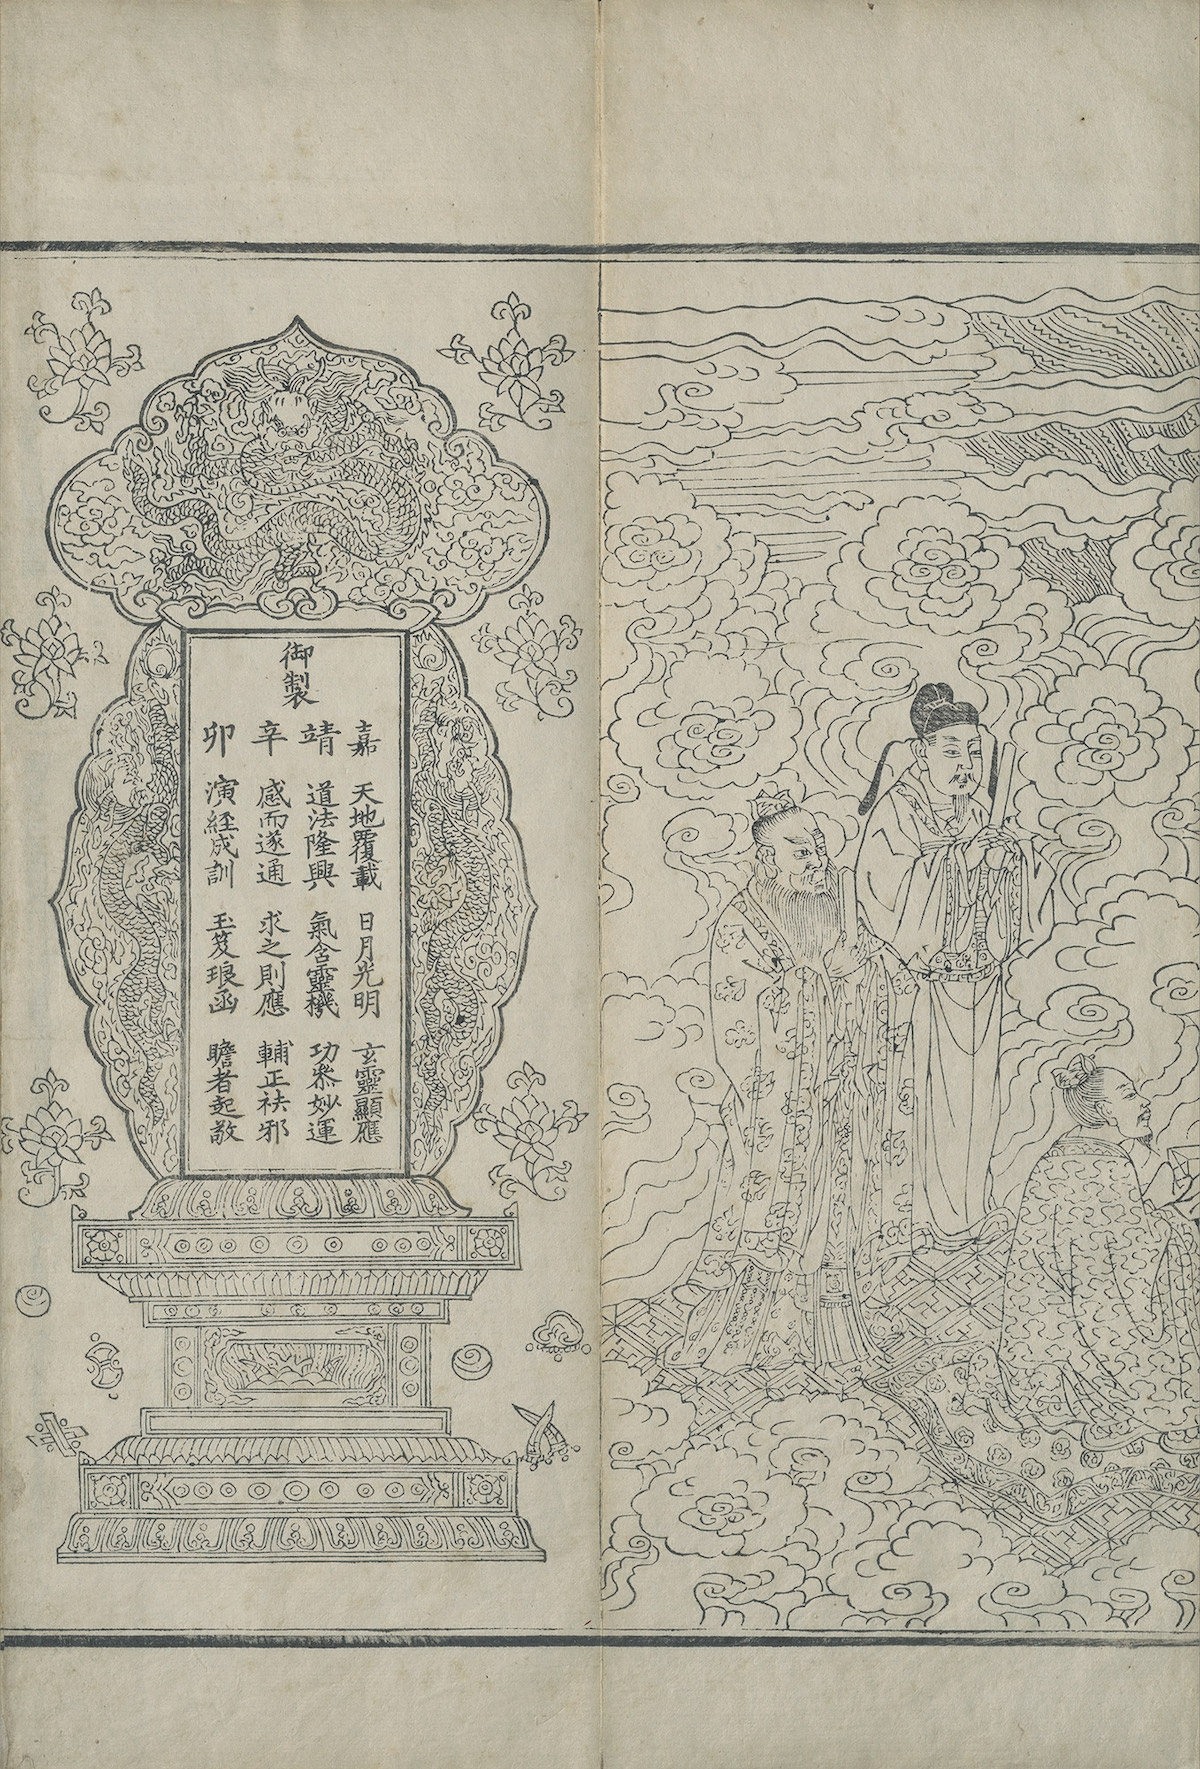 御製
嘉 天地覆載 日月光明 玄靈顯應
靖 道法隆興 氣含靈機 功叅妙運
辛 感而遂通 求之則應 輔正祛邪
卯 演經成訓 玉笈琅函 瞻者起敬